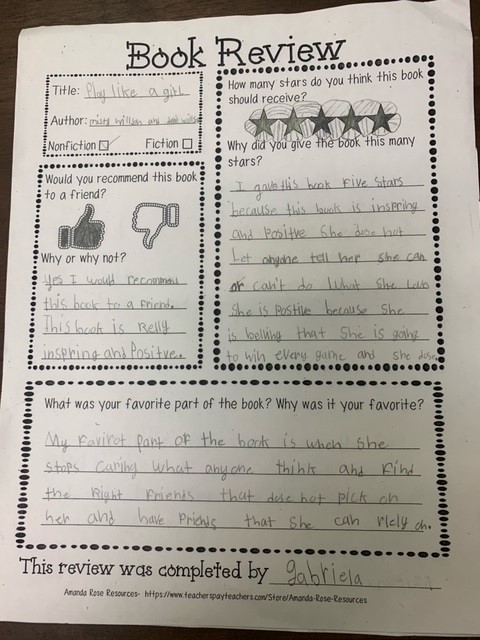 Book Review
Title: Play like a girl
Author: misty willson and
Nonfiction Fiction
How many stars do you think this book
should receive?
Why did you give the book this many
stars?
I gave this book Five Stars
because this book is inspring
and Positve She dose not
Let anyone tell her she can
or can't do What She
She is Postive because She
is that She is going
to win every game and she dose.
Would you recommend this book
to a friend?
Why or why not?
Yes I would recommend
this book to a Friend.
This book is Relly
inspring and Positive.
What was your favorite part of the book? Why was it your favorite?
My Favirot part of the book is when She
stops Caring What anyone think and Find
the Right Friends that dose not pick on
her and have Friends that She can on.
This review was completed by gabriela
Amanda Rose Resources- https://www.teacherspayteachers.com/Store/Amanda-Rose-Resources